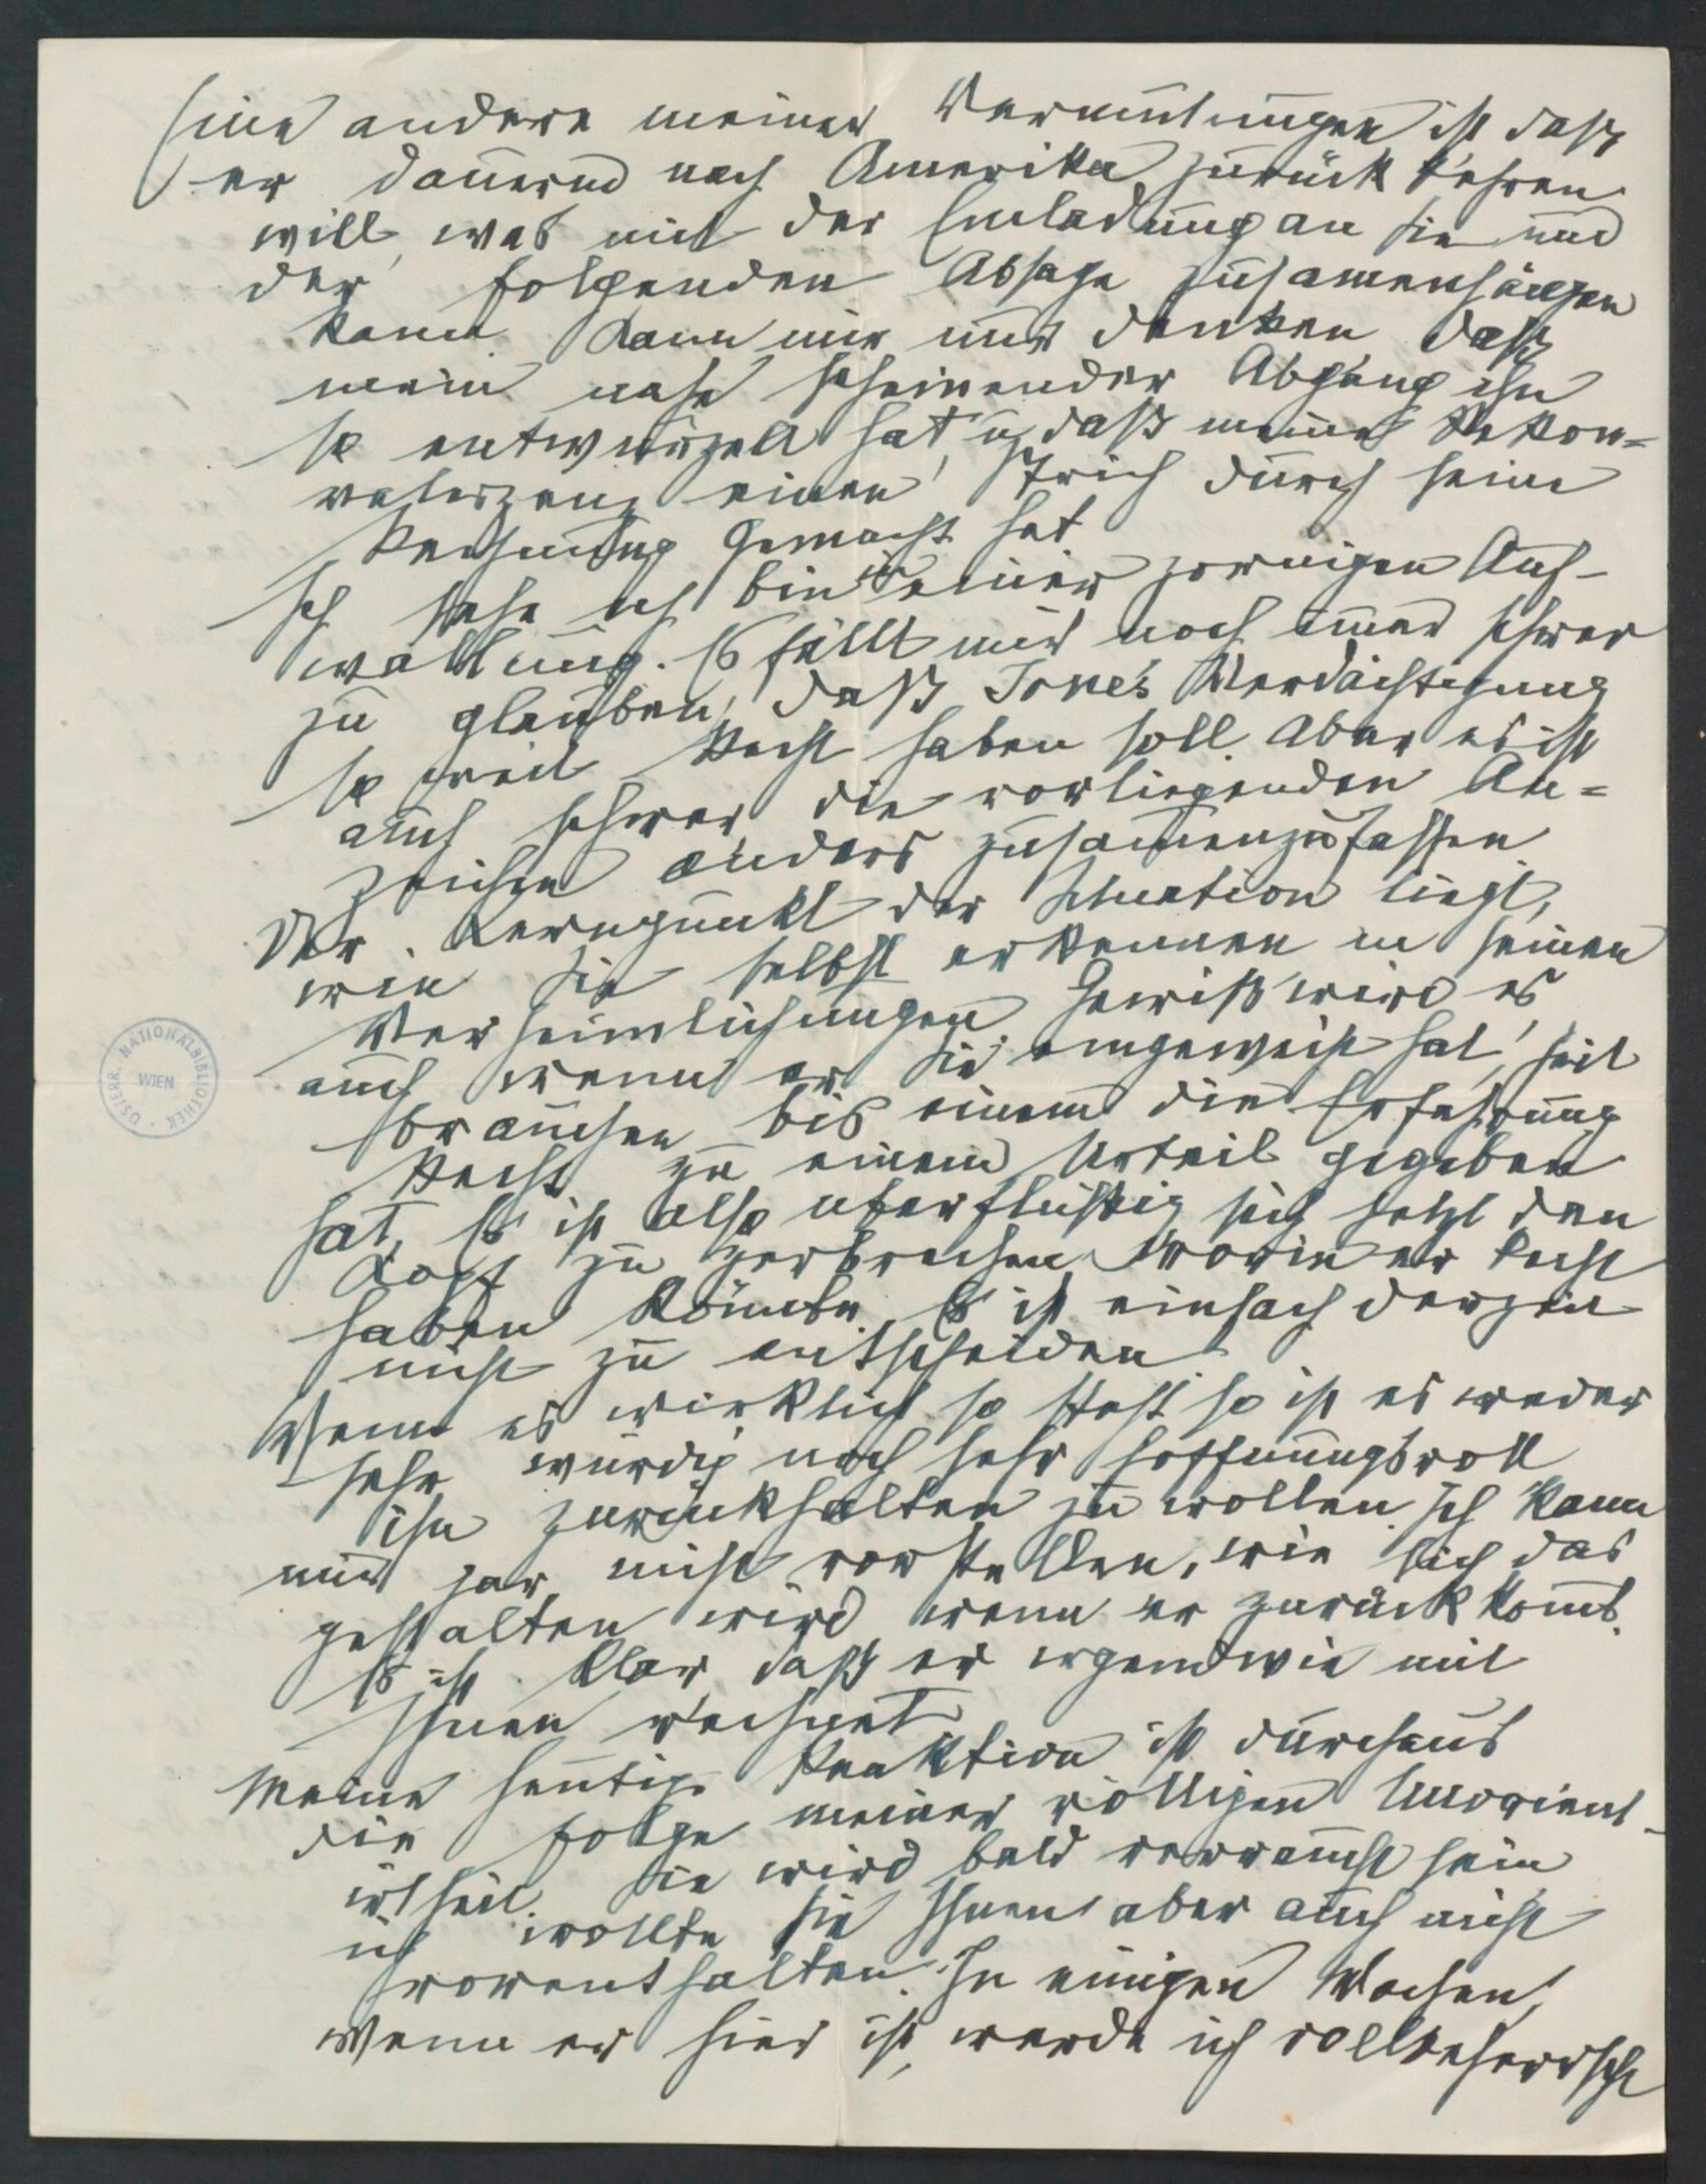 Eine andere meiner Vermutungen ist daß
er dauernd nach Amerika zurück kehren
will, was mit der Einladung an Sie und
der folgenden Absage zusamenhängen
kann. Kann mir nur denken daß
mein nahe scheinender Abgang ihn
so entwurzelt hat, u daß meine Rekon-
valeszenz einen Strich durch seine
Rechnung gemacht hat
Ich sehe ich bin in einer zornigen Auf-
wallung. Es fällt mir noch immer schwer
zu glauben, daß Jones Verdächtigung
so weit Recht haben soll. Aber es ist
auch schwer die vorliegenden An-
zeichen anders zusamenzufassen
Der Kernpunkt der Situation liegt,
wie Sie selbst erkennen in seinen
Verheimlichungen. Gewiß wird es
auch wenn er Sie eingeweiht hat, Zeit
brauchen bis einem die Erfahrung
Recht zu einem Urteil gegeben
hat. Es ist also überflüssig sich jetzt den
Kopf zu zerbrechen worin er Recht
haben könnte. Es ist einfach derzeit
nicht zu entscheiden.
Wenn es wirklich so steht so ist es weder
sehr würdig noch sehr hoffnungsvoll
ihn zurückhalten zu wollen. Ich kann
mir gar nicht vorstellen, wie sich das
gestalten wird wenn er zurück komt.
Es ist klar daß er irgendwie mit
Ihnen rechnet
Meine heutige Reaktion ist durchaus
die Folge meiner völligen Unorient-
irtheit. Sie wird bald verraucht sein
ich wollte sie Ihnen aber auch nicht
vorenthalten. In einigen Wochen,
wenn er hier ist, werde ich vollbeherrscht
ÖSTERR. NATIONALBIBLIOTHEK
WIEN